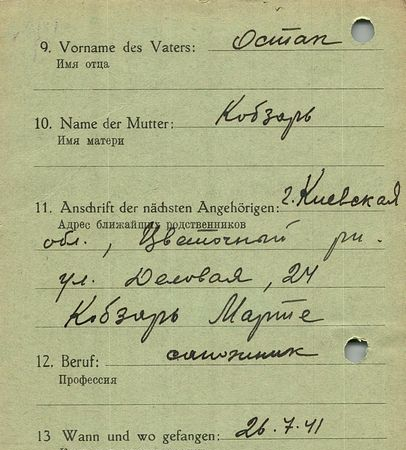 9. Vorname des Vaters: Остап
Имя отца
10. Name der Mutter: Кобзарь
Имя матери
11. Anschrift der nächsten Angehörigen: г. Киевская
Адрес ближайших родственников
обл., Цветочный
ул. Деловая, 24
Кобзарь Марте
12. Beruf: сапожник
Профессия
13 Wann und wo gefangen: 26.7.41